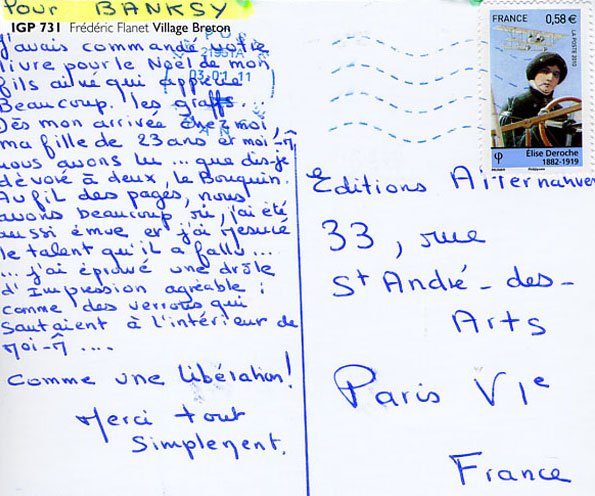 Pour BANKSY
IGP 731 Frédéric Flanet Village Breton
j'avais commandé votre
livre pour le Noël de mon
fils aîné qui apprécie
Beaucoup les graffs.
Dès mon arrivée chez moi,
ma fille de 23 ans et moi-m̂
nous avons lu ... que dis-je
dévoré à deux, le Bouquin.
Au fil des pages, nous
avons beaucoup ri, j'ai été
aussi émue et j'ai mesuré
le talent qu'il a fallu ...
... j'ai éprouvé une drôle
d'Impression agréable :
comme des verrous qui
sautaient à l'intérieur de
moi-m̂ ....
Comme une libération!
Merci tout
Simplement.
21951A
03.01.11
FRANCE 0,58 €
LA POSTE 2010
Élise Deroche
1882-1919
Editions Alternatives
33, rue
St André-des-
Arts
Paris VIe
France